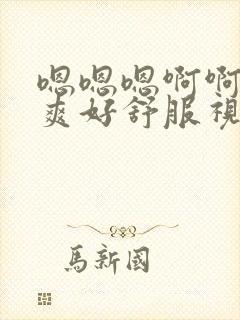 嗯嗯嗯啊啊
爽好舒服視
馬新國